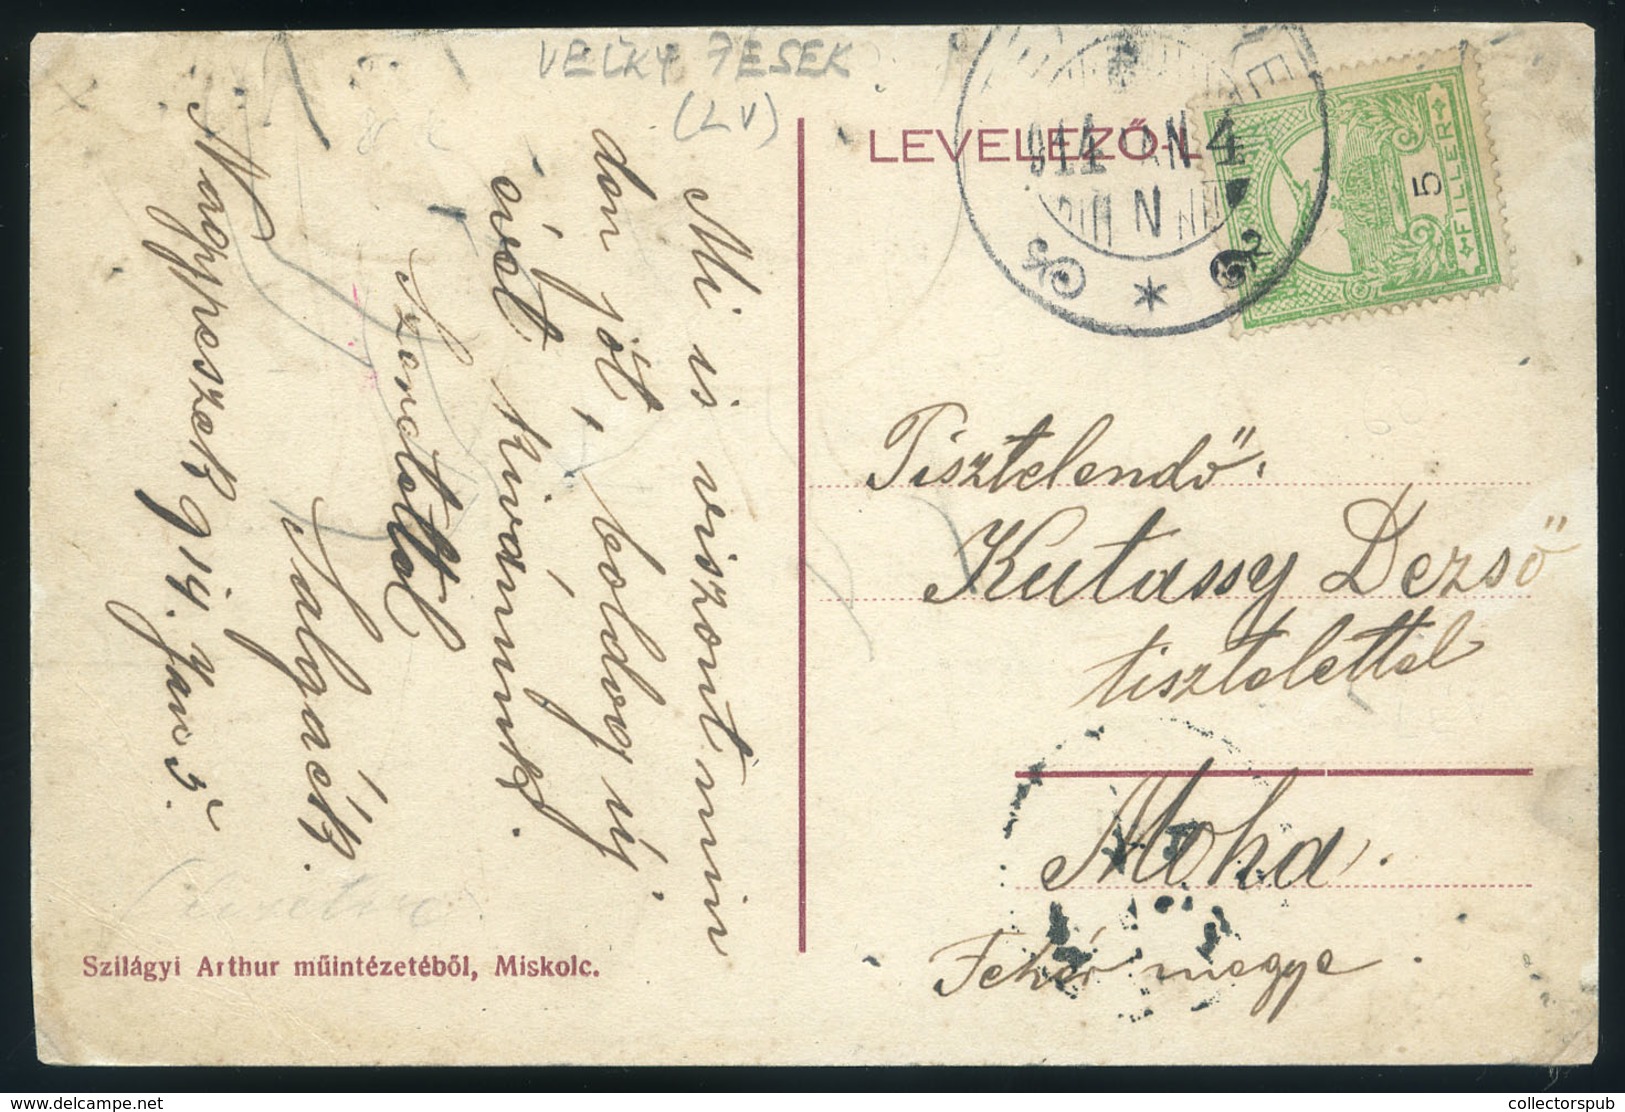 VELKY PESEK
(LV)
LEVELEZŐ-L
914 JAN 4
N
5
FILLÉR
Mi is viszont min
den jót, boldog új
évet kivánunk.
Szeretettel
Salgáék.
Nagypeszek 914. Jan 5.
Tisztelendő
Kutassy Dezső
tisztelettel
Moha.
Fehér megye.
Szilágyi Arthur műintézetéből, Miskolc.
delcampe.net
collectorspub